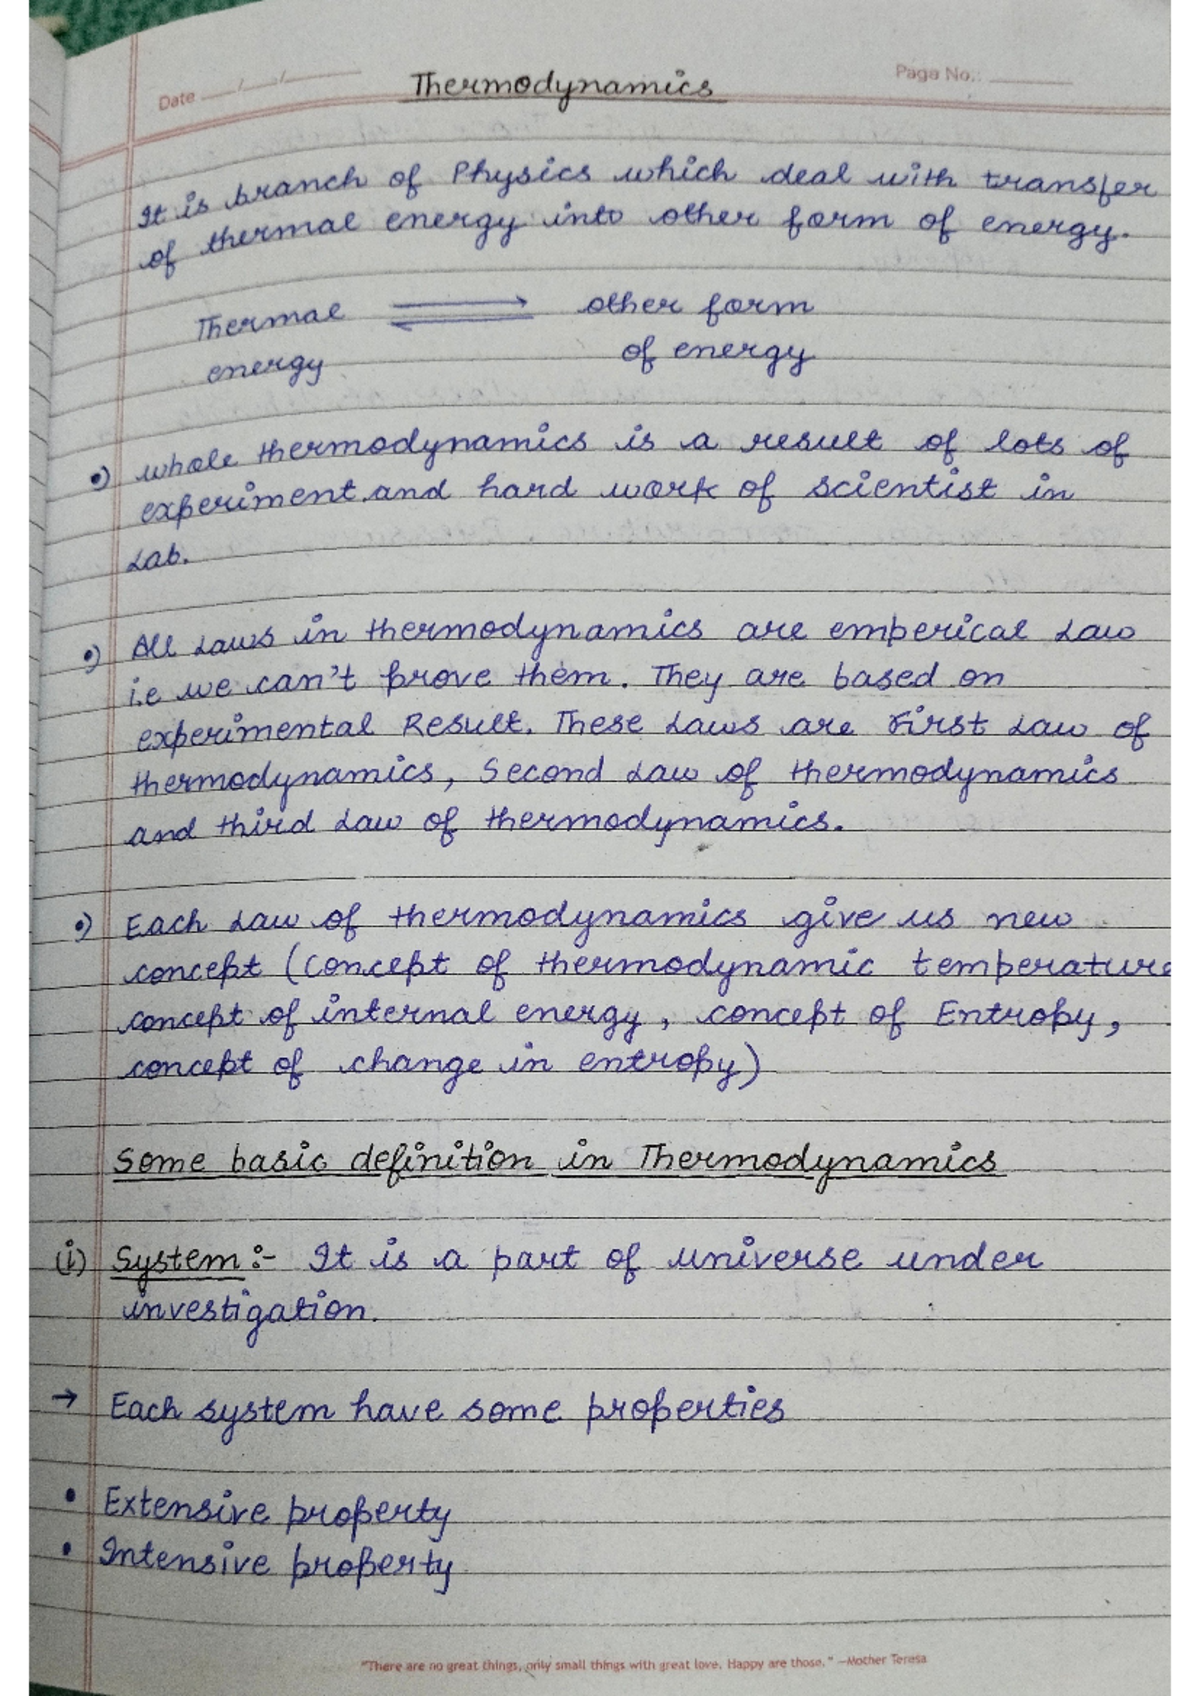 Date __/__/____
Thermodynamics
Page No.: ______
It is branch of Physics which deal with transfer
of thermal energy into other form of energy.
Thermal ⇌ other form
energy of energy
•) whole thermodynamics is a result of lots of
experiment and hard work of scientist in
Lab.
•) All Laws in thermodynamics are emperical Law
i.e we can't prove them. They are based on
experimental Result. These Laws are First Law of
thermodynamics, Second Law of thermodynamics
and third Law of thermodynamics.
•) Each Law of thermodynamics give us new
concept (concept of thermodynamic temperature
concept of internal energy, concept of Entropy,
concept of change in entropy)
Some basic definition in Thermodynamics
(i) System :- It is a part of universe under
investigation.
→ Each system have some properties
• Extensive property
• Intensive property
"There are no great things, only small things with great love. Happy are those." —Mother Teresa